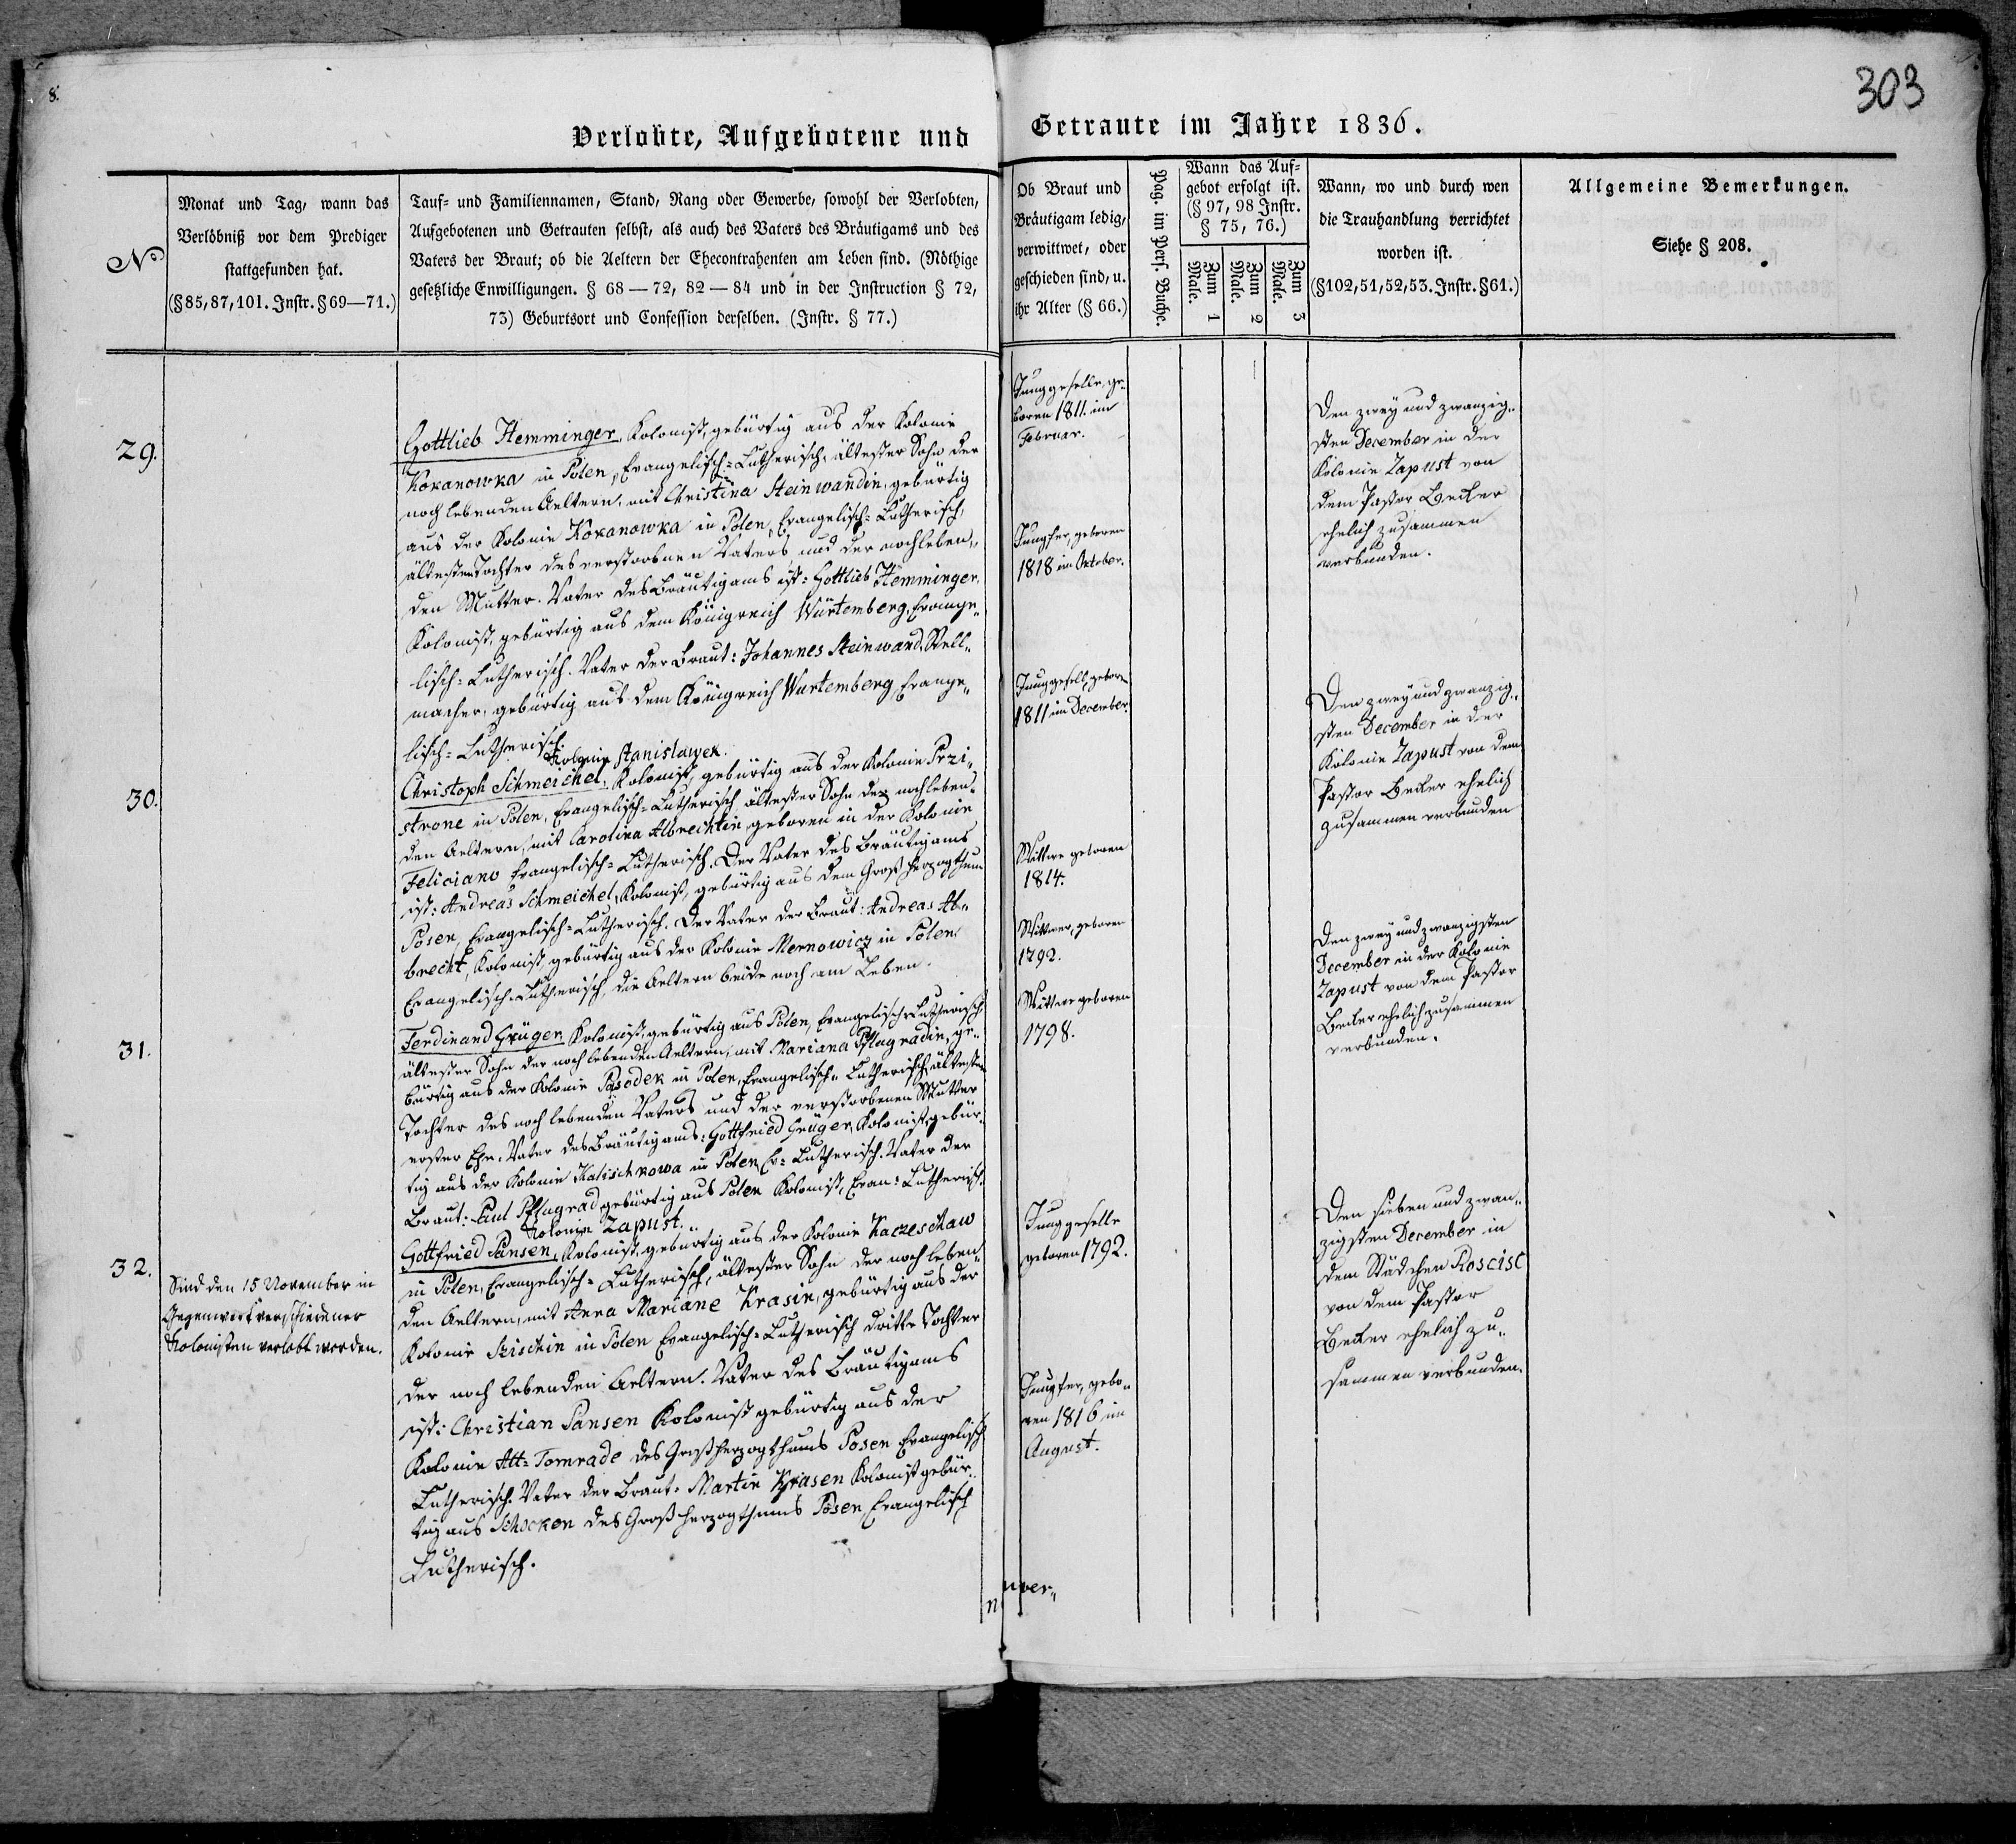 8.
303
Verlobte, Aufgebotene und Getraute im Jahre 1836.
No
Monat und Tag, wann das
Verlöbniß vor dem Prediger
stattgefunden hat.
(§85, 87, 101. Instr. §69—71.)
Tauf- und Familiennamen, Stand, Rang oder Gewerbe, sowohl der Verlobten,
Aufgebotenen und Getrauten selbst, als auch des Vaters des Bräutigams und des
Vaters der Braut; ob die Aeltern der Ehecontrahenten am Leben sind. (Nöthige
gesetzliche Enwilligungen. § 68—72, 82—84 und in der Instruction § 72,
73) Geburtsort und Confession derselben. (Instr. § 77.)
Ob Braut und
Bräutigam ledig,
verwittwet, oder
geschieden sind, u.
ihr Alter (§ 66.)
Pag. im Pers. Buche.
Wann das Auf-
gebot erfolgt ist.
(§ 97, 98 Instr.
§ 75, 76.)
Zum 1 Male.
Zum 2 Male.
Zum 3 Male.
Wann, wo und durch wen
die Trauhandlung verrichtet
worden ist.
(§102, 51, 52, 53. Instr. §61.)
Allgemeine Bemerkungen.
Siehe § 208.
29.
Gottlieb Hemminger, Kolonist, gebürtig aus der Kolonie
Kokanowka in Polen, Evangelisch-Lutherisch, ältester Sohn der
noch lebenden Aeltern, mit Christina Steinwandin, gebürtig
aus der Kolonie Kokanowka in Polen, Evangelisch-Lutherisch,
ältesten Tochter des verstorbnen Vaters und der nochleben-
den Mutter. Vater des Bräutigams ist: Gottlieb Hemminger,
Kolonist, gebürtig aus dem Königreich Würtemberg, Evange-
lisch-Lutherisch. Vater der Braut: Johannes Steinwand, Stell-
macher, gebürtig aus dem Königreich Wurtemberg, Evange-
lisch-Lutherisch.
Junggeselle, ge-
boren 1811. im
Februar.
Jungfer, geboren
1818 im October.
Den zwey und zwanzig-
sten December in der
Kolonie Zapust von
dem Pastor Becker
ehelich zusammen
verbunden.
30.
Kolonie Stanislawek.
Christoph Schmeichel, Kolonist, gebürtig aus der Kolonie Przi-
strone in Polen, Evangelisch-Lutherisch ältester Sohn der nochleben-
den Aeltern, mit Carolina Albrechtin, geboren in der Kolonie
Feliciano Evangelisch-Lutherisch. Der Vater des Bräutigams
ist: Andreas Schmeichel, Kolonist, gebürtig aus dem Großherzogthum
Posen, Evangelisch-Lutherisch. Der Vater der Braut: Andreas Al-
brecht, Kolonist, gebürtig aus der Kolonie Mernowicz in Polen,
Evangelisch-Lutherisch, die Aeltern beide noch am Leben.
Junggesell, geboren
1811 im December.
Wittwe geboren
1814.
Den zwey und zwanzig-
sten December in der
Kolonie Zapust von dem
Pastor Becker ehelich
zusammen verbunden
31.
Ferdinand Grüger, Kolonist, gebürtig aus Polen, Evangelisch-Lutherisch,
ältester Sohn der noch lebenden Aeltern, mit Mariana Pflugradin, ge-
bürtig aus der Kolonie Pasodek in Polen, Evangelisch-Lutherisch, ältesten
Tochter des noch lebenden Vaters und der verstorbenen Mutter
erster Ehe. Vater des Bräutigams: Gottfried Grüger, Kolonist, gebür-
tig aus der Kolonie Kalischkowa in Polen, Ev-Lutherisch. Vater der
Braut: Paul Pflugrad gebürtig aus Polen Kolonist, Evan-Lutherisch.
Wittwer, geboren
1792.
Wittwe geboren
1798.
Den zwey und zwanzigsten
December in der Kolonie
Zapust von dem Pastor
Becker ehelich zusammen
verbunden.
32.
Sind den 15 November in
Gegenwart verschiedener
Kolonisten verlobt worden.
Kolonie Zapust.
Gottfried Pansen, Kolonist, gebürtig aus der Kolonie Kaczeschaw
in Polen, Evangelisch-Lutherisch, ältester Sohn der noch leben-
den Aeltern, mit Anna Mariane Krasin, gebürtig aus der
Kolonie Szischin in Polen Evangelisch-Lutherisch dritte Tochter
der noch lebenden Aeltern. Vater des Bräutigams
ist: Christian Pansen Kolonist gebürtig aus der
Kolonie Alt-Tomrade des Großherzogthums Posen Evangelisch
Lutherisch. Vater der Braut: Martin Krasen Kolonist gebür-
tig aus Schocken des Großherzogthums Posen, Evangelisch
Lutherisch.
Junggeselle
geboren 1792.
Jungfer, gebo-
ren 1816 im
August.
Den sieben und zwan-
zigsten December in
dem Städchen Roscisc
von dem Pastor
Becker ehelich zu-
sammen verbunden.